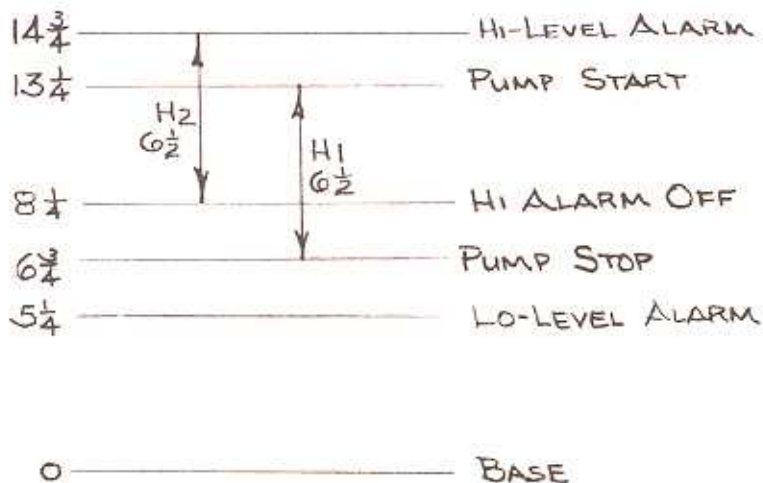 14 3/4 HI-LEVEL ALARM
13 1/4 PUMP START
H2
6 1/2
H1
6 1/2
8 1/4 HI ALARM OFF
6 3/4 PUMP STOP
5 1/4 LO-LEVEL ALARM
0 BASE